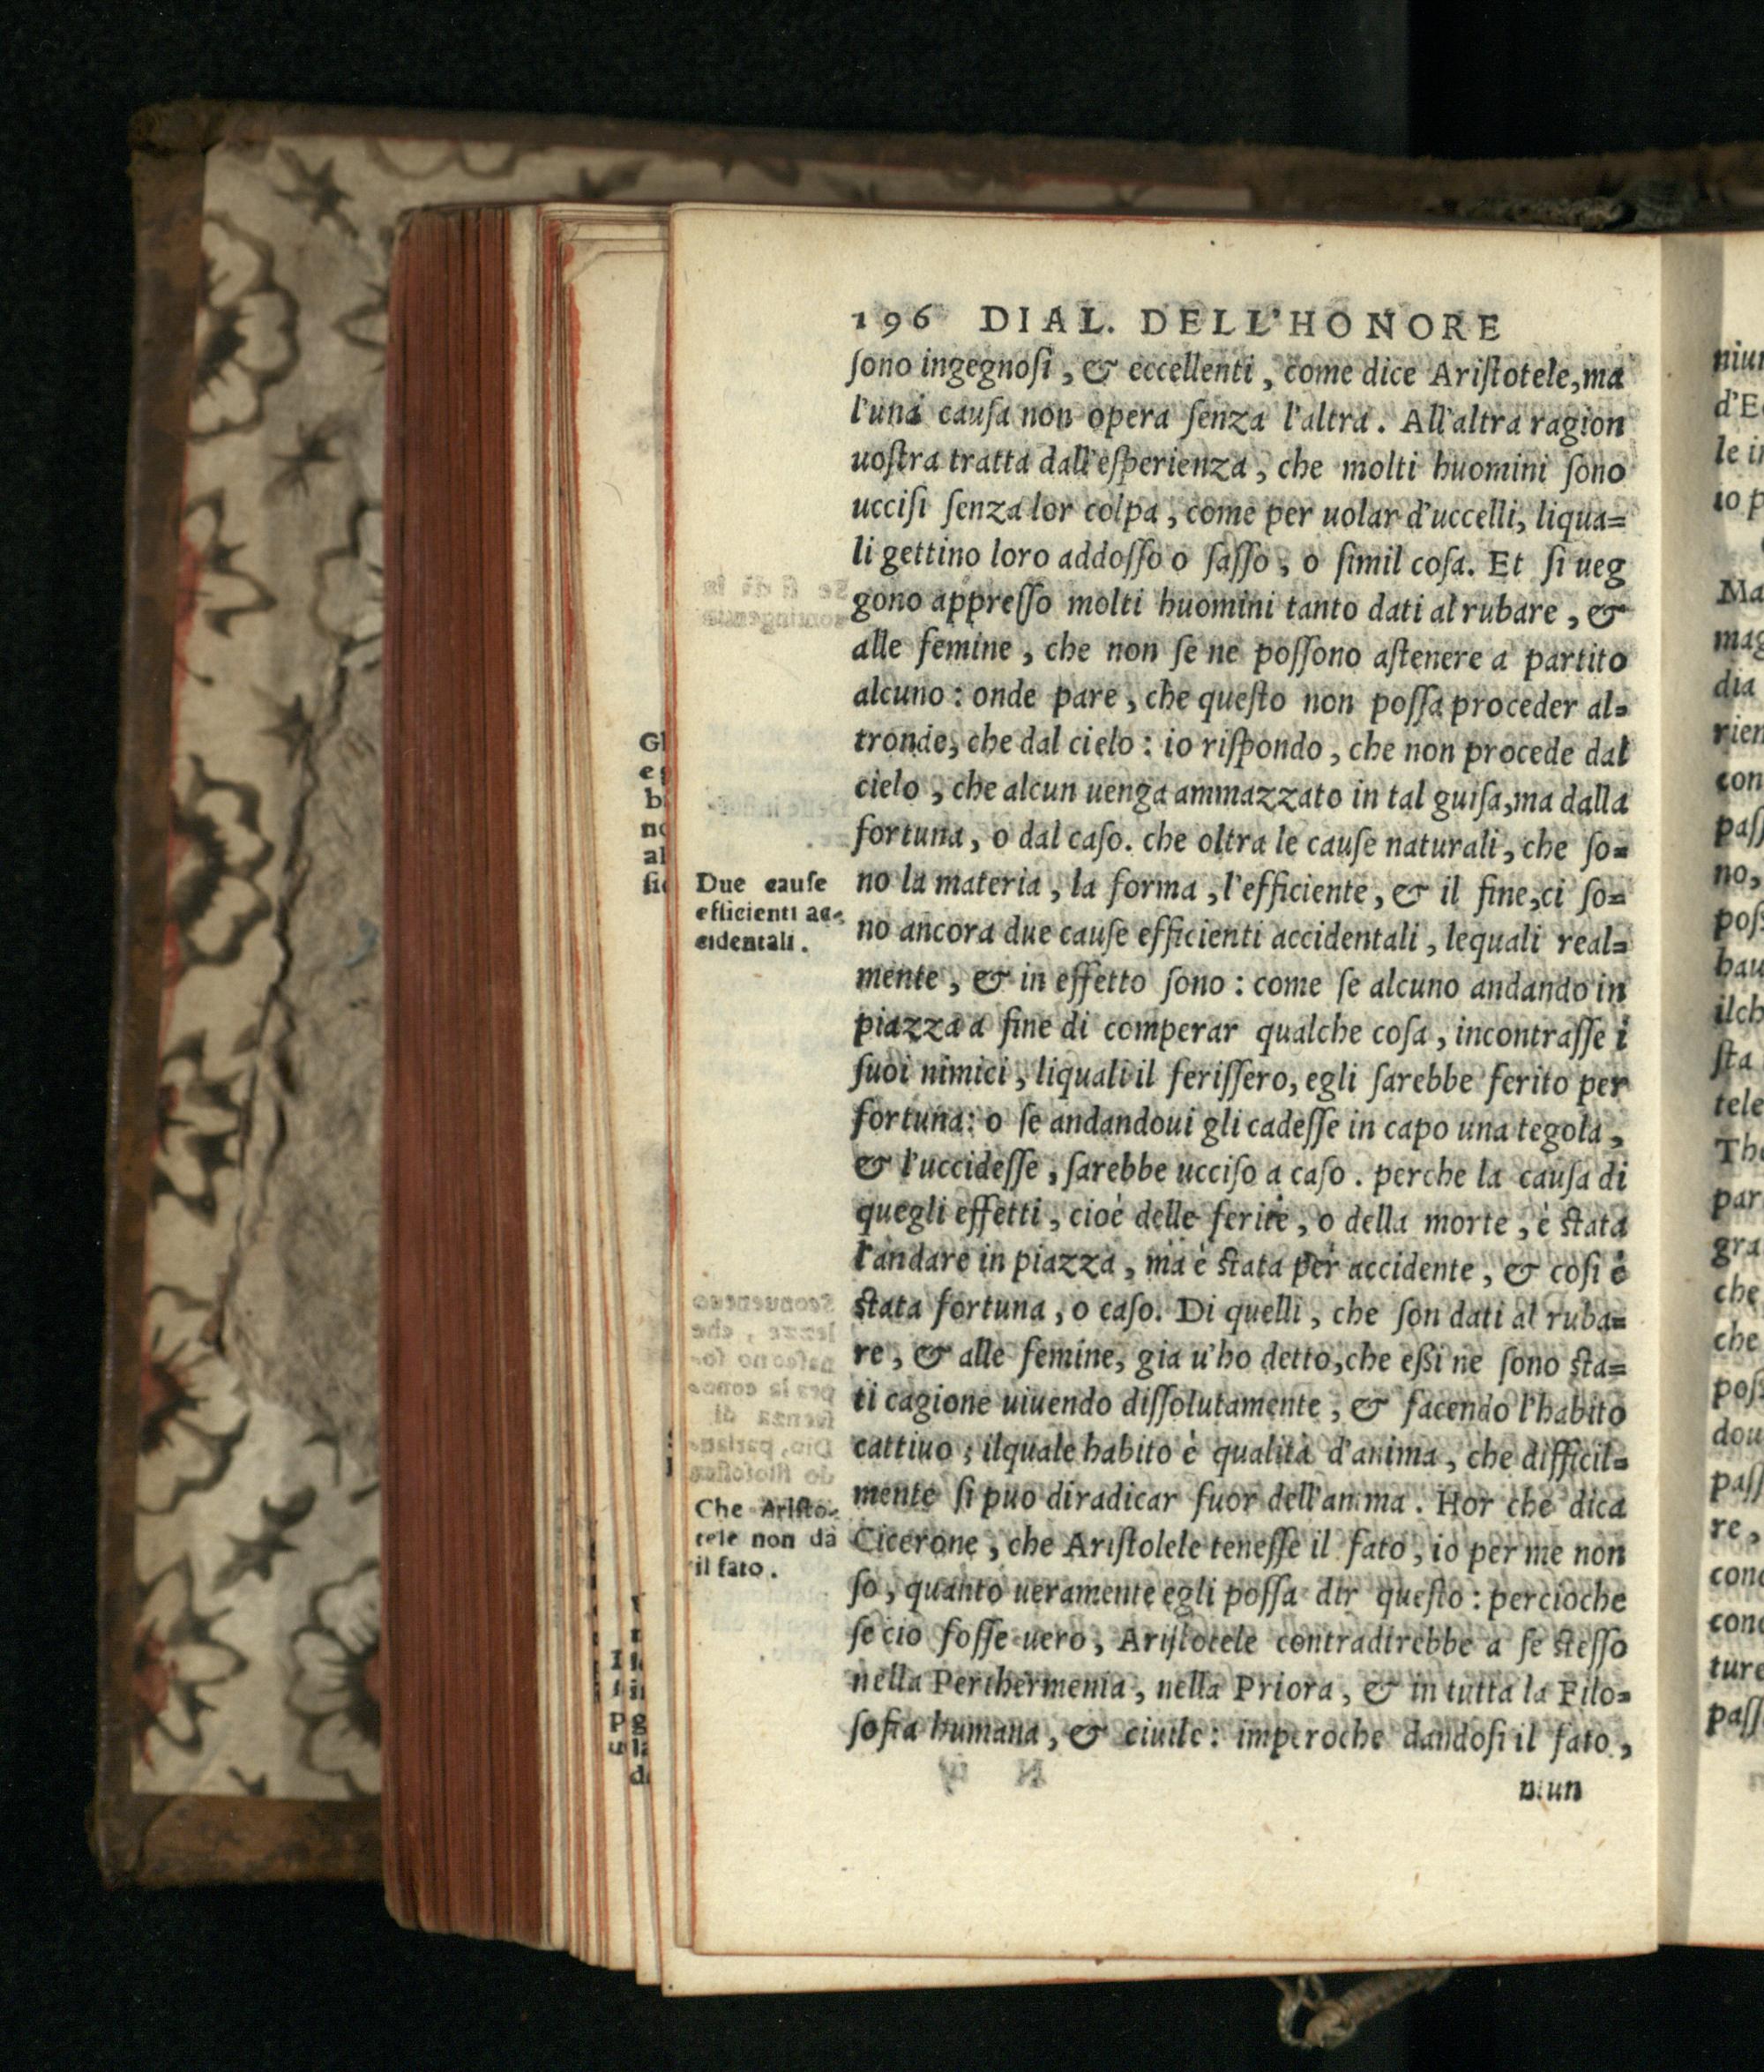 196 DIAL. DELL'HONORE
ſono ingegnoſi, & eccellenti, come dice Ariſtotele, ma
l'una cauſa non opera ſenza l'altra. All'altra ragion
uoſtra tratta dall'eſperienza, che molti huomini ſono
ucciſi ſenza lor colpa, come per uolar d'uccelli, liqua=
li gettino loro addoſſo o ſaſſo, o ſimil coſa. Et ſi ueg
gono appreſſo molti huomini tanto dati al rubare, &
alle femine, che non ſe ne poſſono aſtenere a partito
alcuno: onde pare, che queſto non poſſa proceder al=
tronde, che dal cielo: io riſpondo, che non procede dal
cielo, che alcun uenga ammazzato in tal guiſa, ma dalla
fortuna, o dal caſo. che oltra le cauſe naturali, che ſo=
no la materia, la forma, l'efficiente, & il fine, ci ſo=
no ancora due cauſe efficienti accidentali, lequali real=
mente, & in effetto ſono: come ſe alcuno andando in
piazza a fine di comperar qualche coſa, incontraſſe i
ſuoi nimici, liquali il feriſſero, egli ſarebbe ferito per
fortuna: o ſe andandoui gli cadeſſe in capo una tegola,
& l'uccideſſe, ſarebbe ucciſo a caſo. perche la cauſa di
quegli effetti, cioè delle ferite, o della morte, è ſtata
l'andare in piazza, ma è ſtata per accidente, & coſi è
ſtata fortuna, o caſo. Di quelli, che ſon dati al ruba=
re, & alle femine, gia u'ho detto, che eßi ne ſono ſta=
ti cagione uiuendo diſſolutamente, & facendo l'habito
cattiuo; ilquale habito è qualità d'anima, che difficil=
mente ſi puo diradicar fuor dell'anima. Hor che dica
Cicerone, che Ariſtolele teneſſe il fato, io per me non
ſo, quanto ueramente egli poſſa dir queſto: percioche
ſe cio foſſe uero, Ariſtotele contradirebbe a ſe ſteſſo
nella Perihermenia, nella Priora, & in tutta la Filo=
ſofia humana, & ciuile: imperoche dandoſi il fato,
niun
Due cauſe
efficienti ac-
cidentali.
Che Ariſto-
tele non dà
il fato.